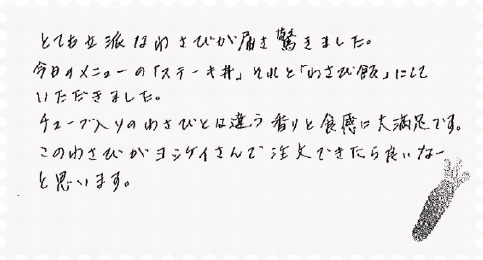 とても立派なわさびが届き驚きました。
今日のメニューの「ステーキ丼」それと「わさび飯」にして
いただきました。
チューブ入りのわさびとは違う香りと食感に大満足です。
このわさびがヨシケイさんで注文できたら良いなー
と思います。